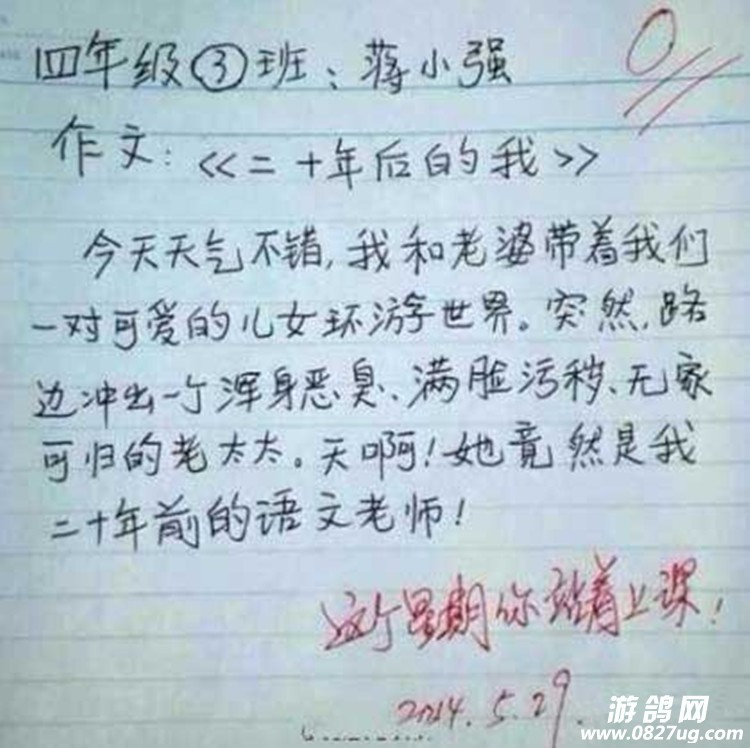 0
四年级③班：蒋小强
作文：<<二十年后的我>>
今天天气不错，我和老婆带着我们
一对可爱的儿女环游世界。突然，路
边冲出一个浑身恶臭、满脸污秽、无家
可归的老太太。天啊！她竟然是我
二十年前的语文老师！
这个星期你站着上课！
2014.5.29.
游鸽网
www.0827ug.com